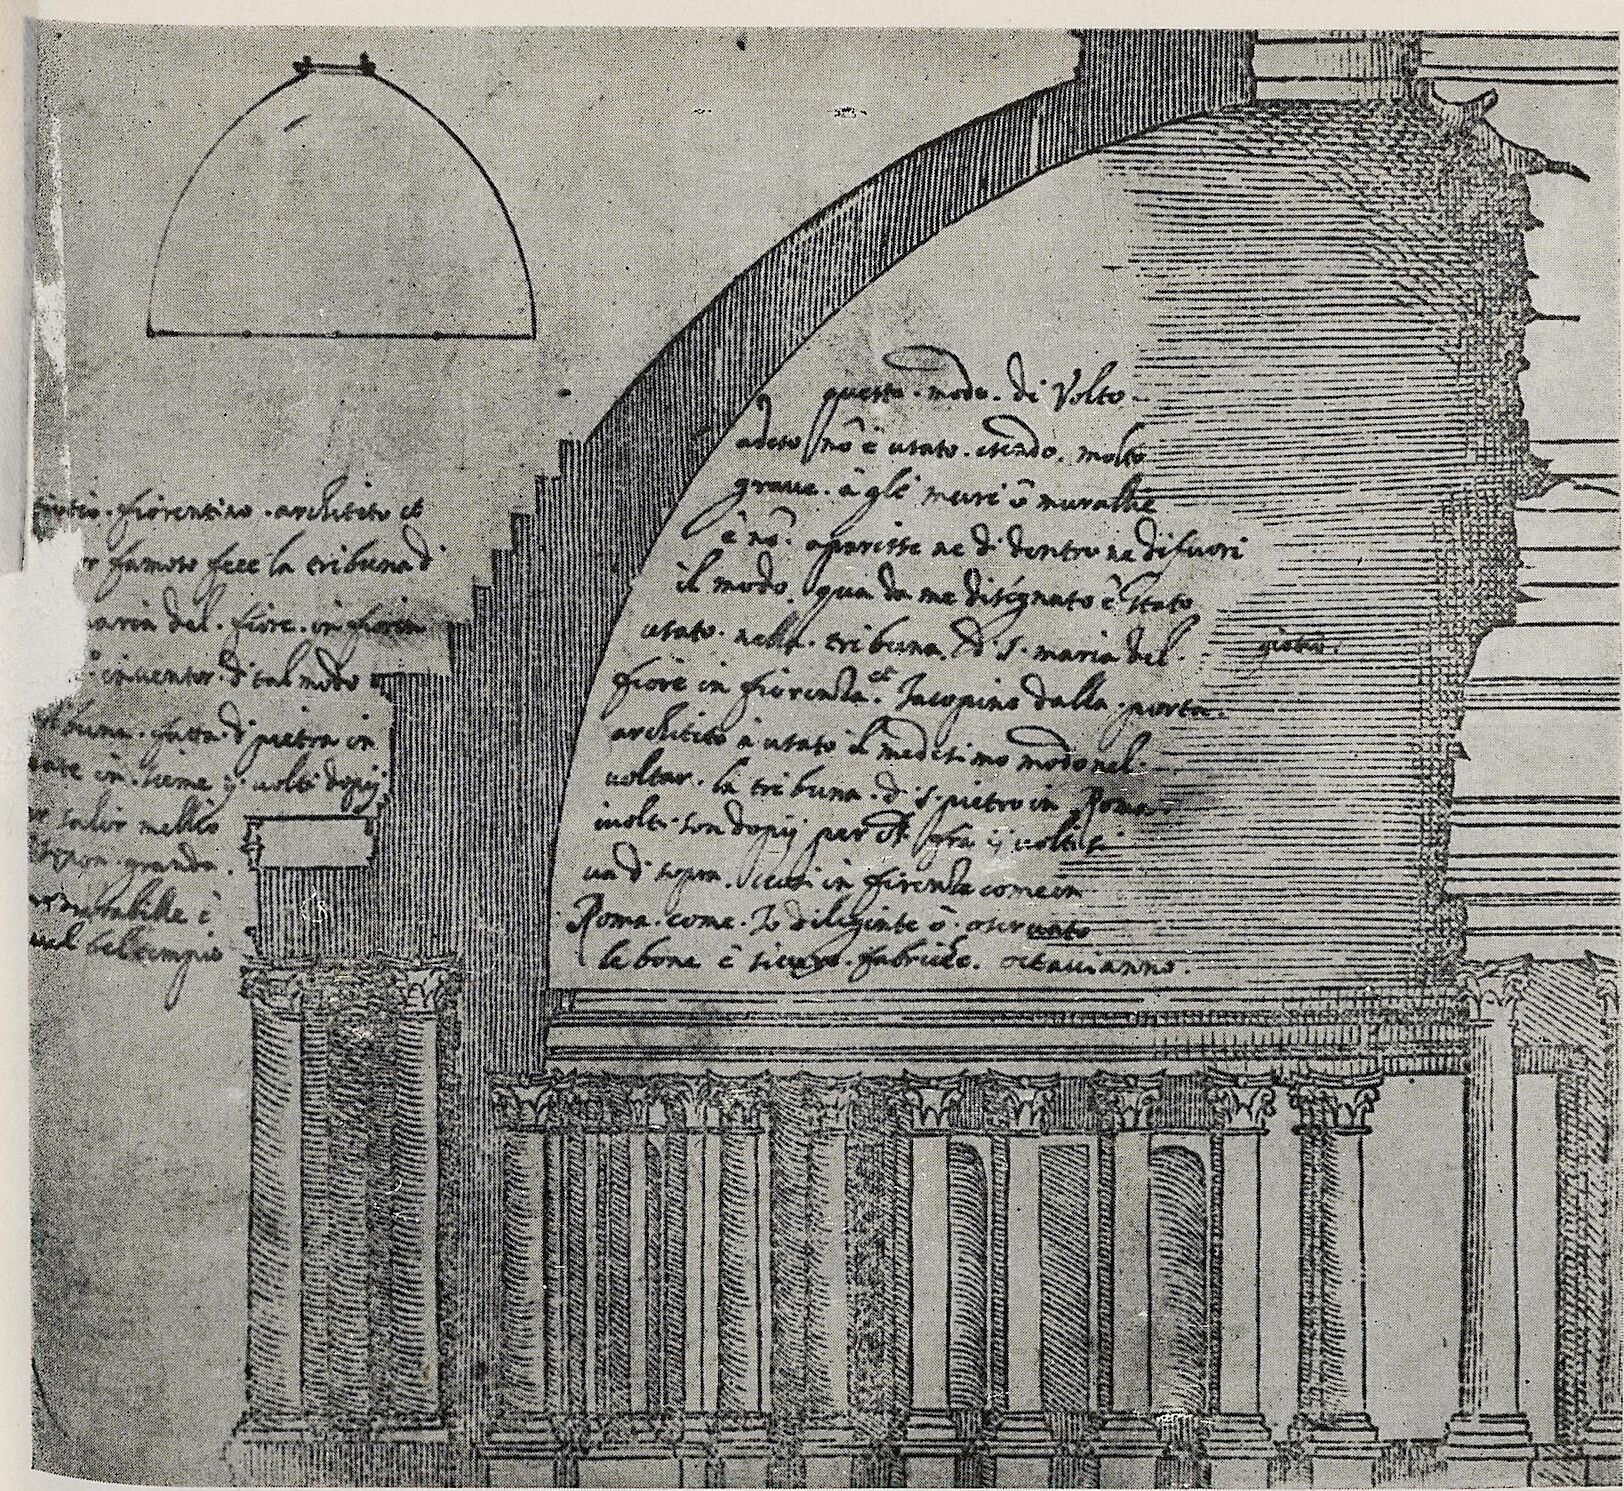 fiorentino . architeto et
famoso fece la tribuna d
maria del . fiore . in fioren
inventor . d tal modo
fatta . d pietra in
in . sieme ij . volti dopij
salir nella
granda .
mirabille è
bel tempio
questo . modo . di Volto
adeso nō è usato . esendo . molto
grave . à gli muri ō muralhe
è nō . aparisse ne di dentro ne di fuori
il modo . qua da me disegnato è stato
usato . nella . tribuna . d . s . maria del .
fiore in fiorenza . et Jacopino dalla . porta .
architeto à usato il medesimo modo nel .
voltar . la tribuna . d . s . pietro in Roma .
i volti son dopij per ij volti si
va d sopra . in firenza come in
Roma . come . Io diligente ō . oservato
le bone è sicure . fabriche . octavianno .